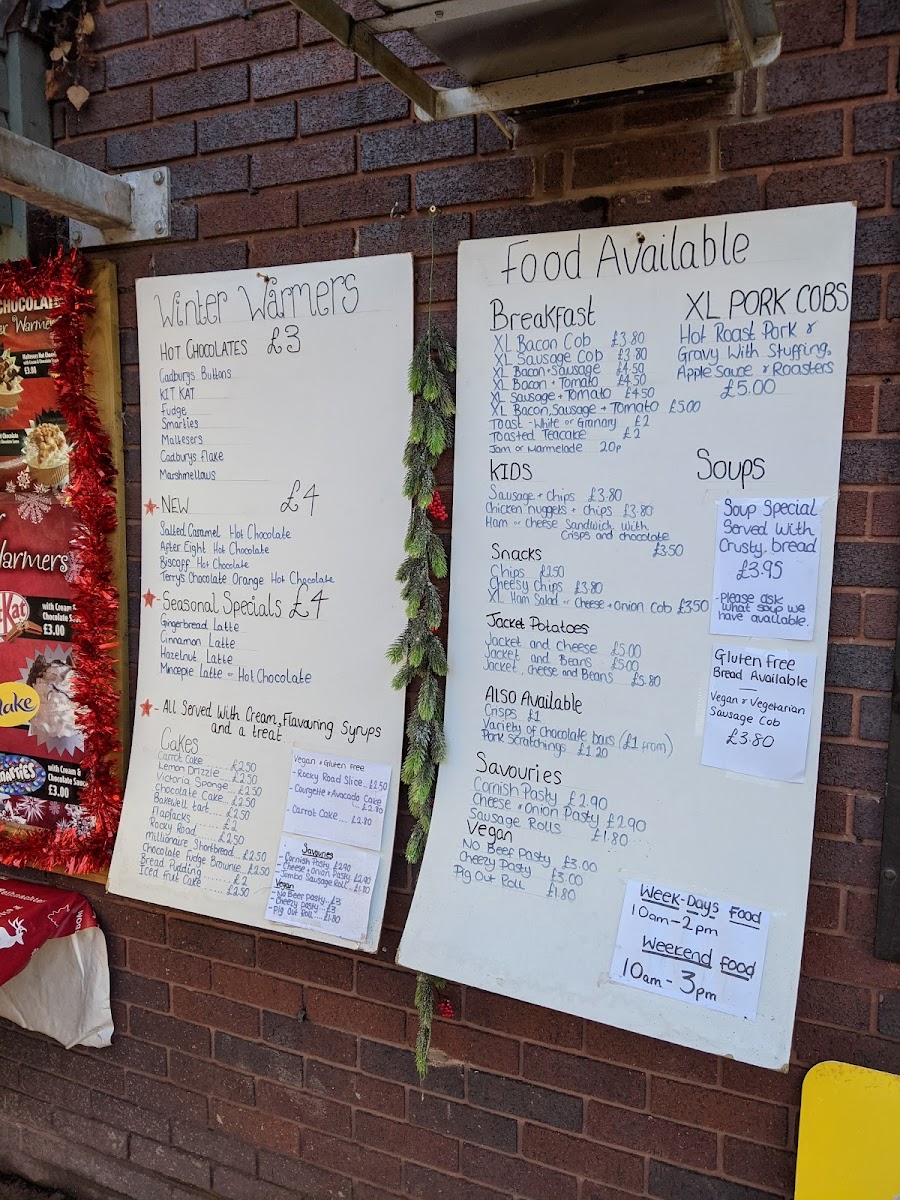 CHOCOLATE
er Warmers
£3.00
Warmers
KitKat
with Cream &
Chocolate Sauce
£3.00
lake
SMARTIES
with Cream &
Chocolate Sauce
£3.00
Winter Warmers
HOT CHOCOLATES £3
Cadburys Buttons
KIT KAT
Fudge
Smarties
Maltesers
Cadburys Flake
Marshmellows
- NEW £4
Salted Caramel Hot Chocolate
After Eight Hot Chocolate
Biscoff Hot Chocolate
Terry's Chocolate Orange Hot Chocolate
- Seasonal Specials £4
Gingerbread Latte
Cinnamon Latte
Hazelnut Latte
Mincepie Latte or Hot Chocolate
- All Served With Cream, Flavouring Syrups
and a treat
Cakes
Carrot Cake £2.50
Lemon Drizzle £2.50
Victoria Sponge £2.50
Chocolate Cake £2.50
Bakewell tart £2.50
Flapjacks £2
Rocky Road £2.50
Millionaire Shortbread £2.50
Chocolate Fudge Brownie £2.50
Bread Pudding £2
Iced fruit Cake £2.50
Vegan + Gluten Free
- Rocky Road Slice £2.50
- Courgette + Avocado Cake
£2.80
- Carrot Cake £2.80
Savouries
- Cornish Pasty £2.90
- Cheese + Onion Pasty £2.90
- Jumbo Sausage Roll £1.80
Vegan
- No Beef pasty £3
- Cheezy pasty £3
- Pig Out Roll £1.80
Food Available
Breakfast
XL Bacon Cob £3.80
XL Sausage Cob £3.80
XL Bacon + Sausage £4.50
XL Bacon + Tomato £4.50
XL Sausage + Tomato £4.50
XL Bacon, Sausage + Tomato £5.00
Toast - White or Granary £2
Toasted Teacake £2
Jam or Marmelade 20p
KIDS
Sausage + chips £3.80
Chicken nuggets + chips £3.80
Ham or cheese Sandwich With
Crisps and chocolate
£3.50
Snacks
Chips £2.50
Cheesy Chips £3.80
XL Ham Salad or Cheese + Onion Cob £3.50
Jacket Potatoes
Jacket and Cheese £5.00
Jacket and Beans £5.00
Jacket, cheese and Beans £5.80
Also Available
Crisps £1
Variety of chocolate bars (£1 from)
Pork Scratchings £1.20
Savouries
Cornish Pasty £2.90
Cheese + Onion Pasty £2.90
Sausage Rolls £1.80
Vegan
No Beef Pasty £3.00
Cheezy Pasty £3.00
Pig Out Roll £1.80
XL PORK COBS
Hot Roast Pork &
Gravy With Stuffing,
Apple Sauce & Roasters
£5.00
Soups
Soup Special
Served With
Crusty bread
£3.95
- please ask
what soup we
have available.
Gluten Free
Bread Available
—
Vegan & Vegetarian
Sausage Cob
£3.80
Week-Days Food
10am-2pm
Weekend Food
10am-3pm